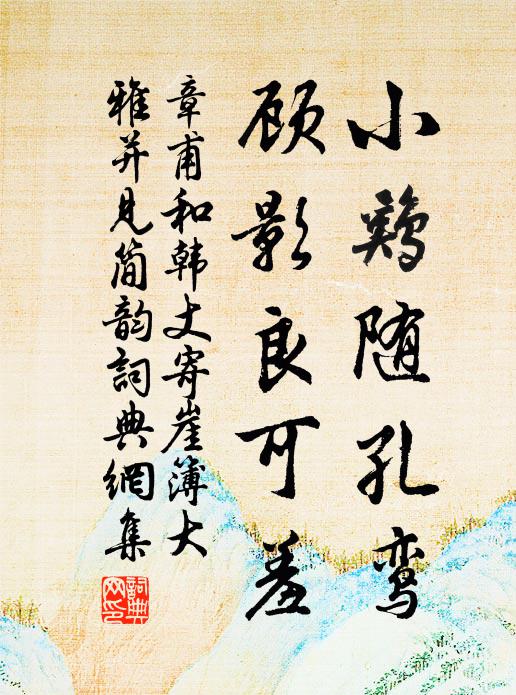 小鷄随孔鸾
顾影良可羞
章甫和韩丈寄崖簿大
雅并见简韵詞典網集
詞典网印